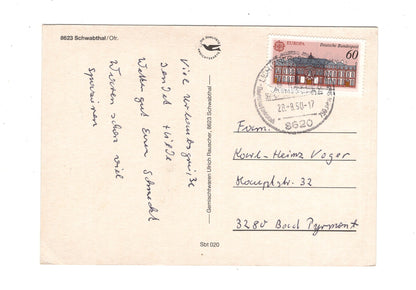 8623 Schwabthal/Ofr.
Viel Urlaubsgrüße
sendet Hilde
Wetter gut Essen Schmeckt
Wirren schon viel
spazieren
Gemischtwaren Ullrich Rauscher, 8623 Schwabthal
Sbt 020
EUROPA
Deutsche Bundespost
60
28-8.90-17
8620
Fam.
Karl-Heinz Voger
Hauptstr. 32
3280 Bad Pyrmont